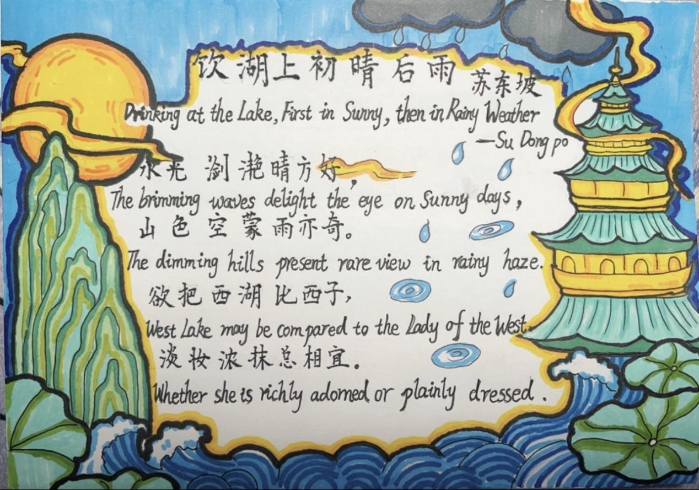 饮湖上初晴后雨 苏东坡
Drinking at the Lake, First in Sunny, then in Rainy Weather
—Su Dong po
水光潋滟晴方好,
The brimming waves delight the eye on Sunny days,
山色空蒙雨亦奇。
The dimming hills present rare view in rainy haze.
欲把西湖比西子,
West Lake may be compared to the Lady of the West,
淡妆浓抹总相宜。
Whether she is richly adorned or plainly dressed.